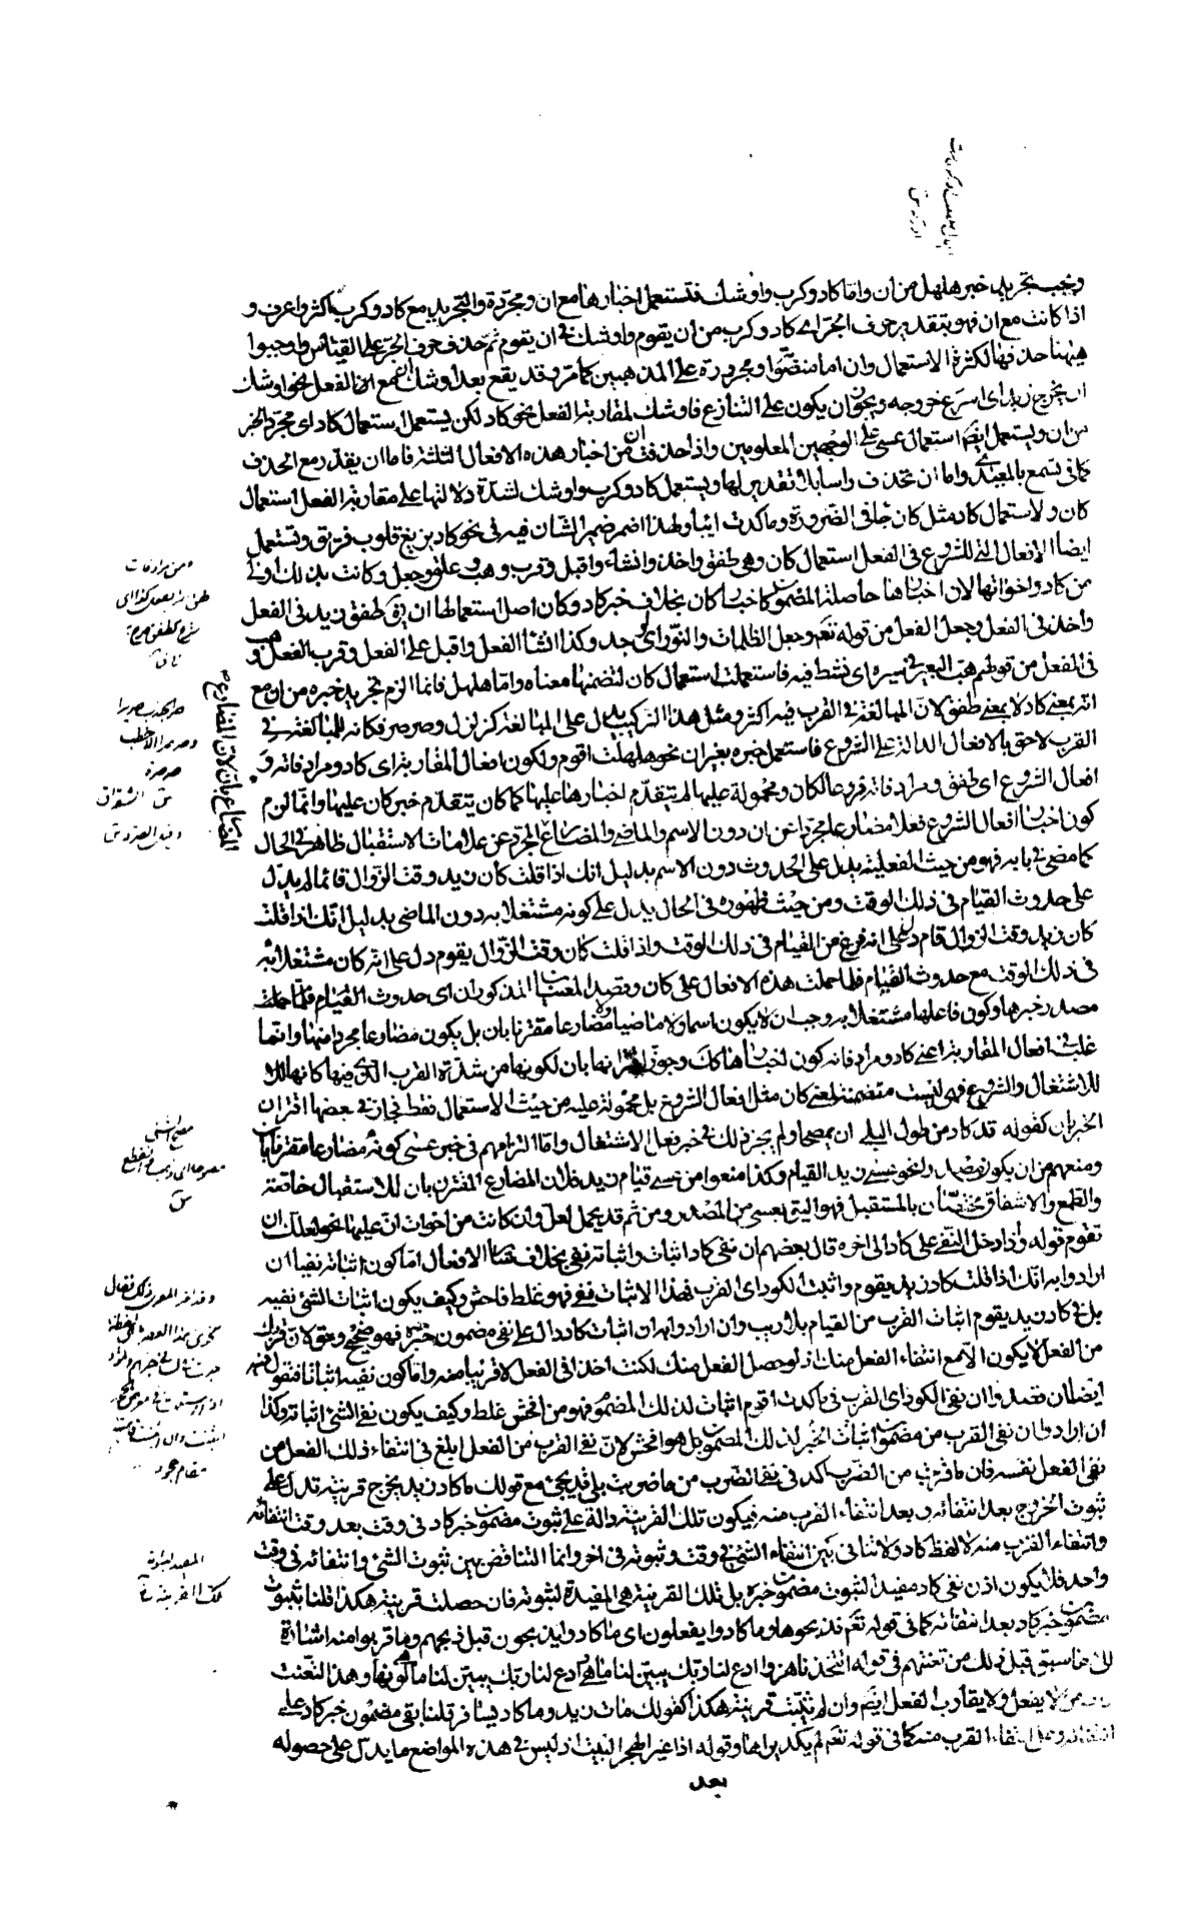 ويجب تجريد خبرها هلهل من ان واما كاد وكرب واوشك فتستعمل اخبارها مع ان ومجردة والتجريد مع كاد وكرب اكثر واعرف و
اذا كانت مع ان فهو بتقدير حرف الجر اى كاد وكرب من ان يقوم واوشك فى ان يقوم ثم حذف حرف الجر على القياس واوجبوا
ههنا حذفها لكثرة الاستعمال وان اما منصوبة او مجرورة على المذهبين كما مر وقد يقع بعد اوشك ان مع الفعل نحو اوشك
ان يخرج زيد اى اسرع خروجه ويجوز ان يكون على التنازع فاوشك لمقاربة الفعل نحو كاد لكن يستعمل استعمال كاد اى مجرد الخبر
من ان ويستعمل ايضا استعمال عسى على الوجهين المعلومين واذا حذفت ان من اخبار هذه الافعال الثلثة فاما ان يقدر مع الحذف
كما فى تسمع بالمعيدى واما ان تحذف راسا بلا تقدير لها ويستعمل كاد وكرب واوشك لشدة دلالتها على مقاربة الفعل استعمال
كان ولاستعمال كاد مثل كان جاء فى الضرورة وما كدت ائبا ولهذا اضمر ضمير الشان فيه فى نحو كاد يزيغ قلوب فريق وتستعمل
ايضا الافعال التى للشروع فى الفعل استعمال كان وهى طفق واخذ وانشاء واقبل وقرب وهب وعلق وجعل وكانت بذلك اولى
من كاد واخواتها لان اخبارها حاصلة المضمون كاخبار كان بخلاف خبر كاد وكان اصل استعمالها ان يق طفق زيد فى الفعل
واخذ فى الفعل وجعل الفعل من قوله تعم وجعل الظلمات والنور اى اوجد وكذا انشا الفعل واقبل على الفعل وقرب الفعل وهب
فى الفعل من قولهم هب البعير فى سيره اى نشط فيه فاستعملت استعمال كان لتضمنها معناه واما هلهل فانما الزم تجريد خبره من ان مع
انه بمعنى كاد لا بمعنى طفق لان المبالغة فى القرب فيه اكثر ومثل هذا التركيب يدل على المبالغة كزلزل وصرصر فكانه للمبالغة فى
القرب لاحق بالافعال الدالة على الشروع فاستعمل خبره بغير ان نحو هلهلت اقوم ولكون افعال المقاربة اى كاد ومرادفاته و
افعال الشروع اى طفق ومرادفاته فروعا لكان ومحمولة عليها لم يتقدم اخبارها عليها كما كان يتقدم خبر كان عليها وانما لزم
كون اخبار افعال الشروع فعلا مضارعا مجردا عن ان دون الاسم والماضى والمضارع المجرد عن علامات الاستقبال ظاهر فى الحال
كما مضى فى بابه فهو من حيث الفعلية يدل على الحدوث دون الاسم بدليل انك اذا قلت كان زيد وقت الزوال قائما لم يدل
على حدوث القيام فى ذلك الوقت ومن حيث ظهوره فى الحال يدل على كونه مشتغلا به دون الماضى بدليل انك اذا قلت
كان زيد وقت الزوال قام دل على انه فرغ من القيام فى ذلك الوقت واذا قلت كان وقت الزوال يقوم دل على انه كان مشتغلا به
فى ذلك الوقت مع حدوث القيام فلما حملت هذه الافعال على كان وقصد المعنيان المذكوران اى حدوث
مصدر خبرها وكون فاعلها مشتغلا به وجب ان لا يكون اسما ولا ماضيا ولا مضارعا مقترنا بان بل يكون مضارعا مجردا منها وانما
غلب فى افعال المقاربة اعنى كاد ومرادفاته كون اخبارها كك وجوز اقترانها بان لكونها من شدة القرب الذى فيها كانها
للاشتغال والشروع فهى ليست متضمنة لمعنى كان مثل افعال الشروع بل محمولة عليه من حيث الاستعمال فقط فجاز فى بعضها اقتران
الخبر بان كقوله قد كاد من طول البلى ان يمصحا ولم يجز ذلك فى خبر فعل الاشتغال واما التزامهم فى خبر عسى كونه مضارعا مقترنا بان
ومنعهم من ان يكون مصدرا نحو عسى زيد القيام وكذا منعوا من عسى قيام زيد فلان المضارع المقترن بان للاستقبال خاصة
والطمع والاشفاق مختصان بالمستقبل فهو اليق بعسى من المصدر ومن ثم قد يحمل لعل وان كانت من اخوات ان عليها نحو لعلك ان
تقوم قوله واذا دخل النفى على كاد الى اخره قال بعضهم ان نفى كاد اثبات واثباته نفى بخلاف الافعال اما كون اثباته نفيا ان
ارادوا به انك اذا قلت كاد زيد يقوم واثبت الكود اى القرب فهذا الاثبات نفى فهو غلط فاحش وكيف يكون اثبات الشئ نفيه
بل فى كاد زيد يقوم اثبات القرب من القيام بلا ريب وان ارادوا به ان اثبات كاد دال على نفى مضمون خبره فهو صحيح وحق لان قربك
من الفعل لا يكون الا مع انتفاء الفعل منك اذ لو حصل الفعل منك لكنت اخذا فى الفعل لا قريبا منه واما كون نفيه اثباتا فنقول فيه
ايضا ان قصد وان نفى الكود اى القرب فى ما كدت اقوم اثبات لذلك المضمون فهو من افحش غلط وكيف يكون نفى الشئ اثباته وكذا
ان ارادوا ان نفى القرب من مضمون الخبر اثبات لذلك المضمون بل هو افحش لان نفى القرب من الفعل ابلغ فى انتفاء ذلك الفعل من
نفى الفعل نفسه فان ما قربت من الضرب اكد فى نفى الضرب من ما ضربت بلى قد يجئ مع قولك ما كاد زيد يخرج قرينة تدل على
ثبوت الخروج بعد انتفائه وبعد انتفاء القرب منه فيكون تلك القرينة دالة على ثبوت مضمون خبر كاد فى وقت بعد وقت انتفائه
وانتفاء القرب منه لا لفظ كاد ولا تنافى بين انتفاء الشئ فى وقت وثبوته فى اخر وانما التناقض بين ثبوت الشئ وانتفائه فى وقت
واحد فلا يكون اذن نفى كاد مفيدا لثبوت مضمون خبره بل تلك القرينة هى المفيدة لثبوته فان حصلت قرينة هكذا قلنا بثبوت
مضمون خبر كاد بعد انتفائه كما فى قوله تعم فذبحوها وما كادوا يفعلون اى ما كادوا يذبحون قبل ذبحهم وما قربوا منه اشارة
الى ما سبق قبل ذلك من تعنتهم فى قوله اتتخذنا هزوا وادع لنا ربك يبين لنا ما هى وادع لنا ربك يبين لنا ما لونها وهذا التعنت
من لا يفعل ولا يقارب الفعل ايضا وان لم يثبت قرينة هكذا كقولك مات زيد وما كاد يسافر قلنا بقى مضمون خبر كاد على
انتفائه وعلى انتفاء القرب منه كما فى قوله تعم لم يكد يراها وقوله اذا غير الهجر البيت اذ ليس فى هذه المواضع ما يدل على حصوله
بعد
المضارع بان لان المضارع